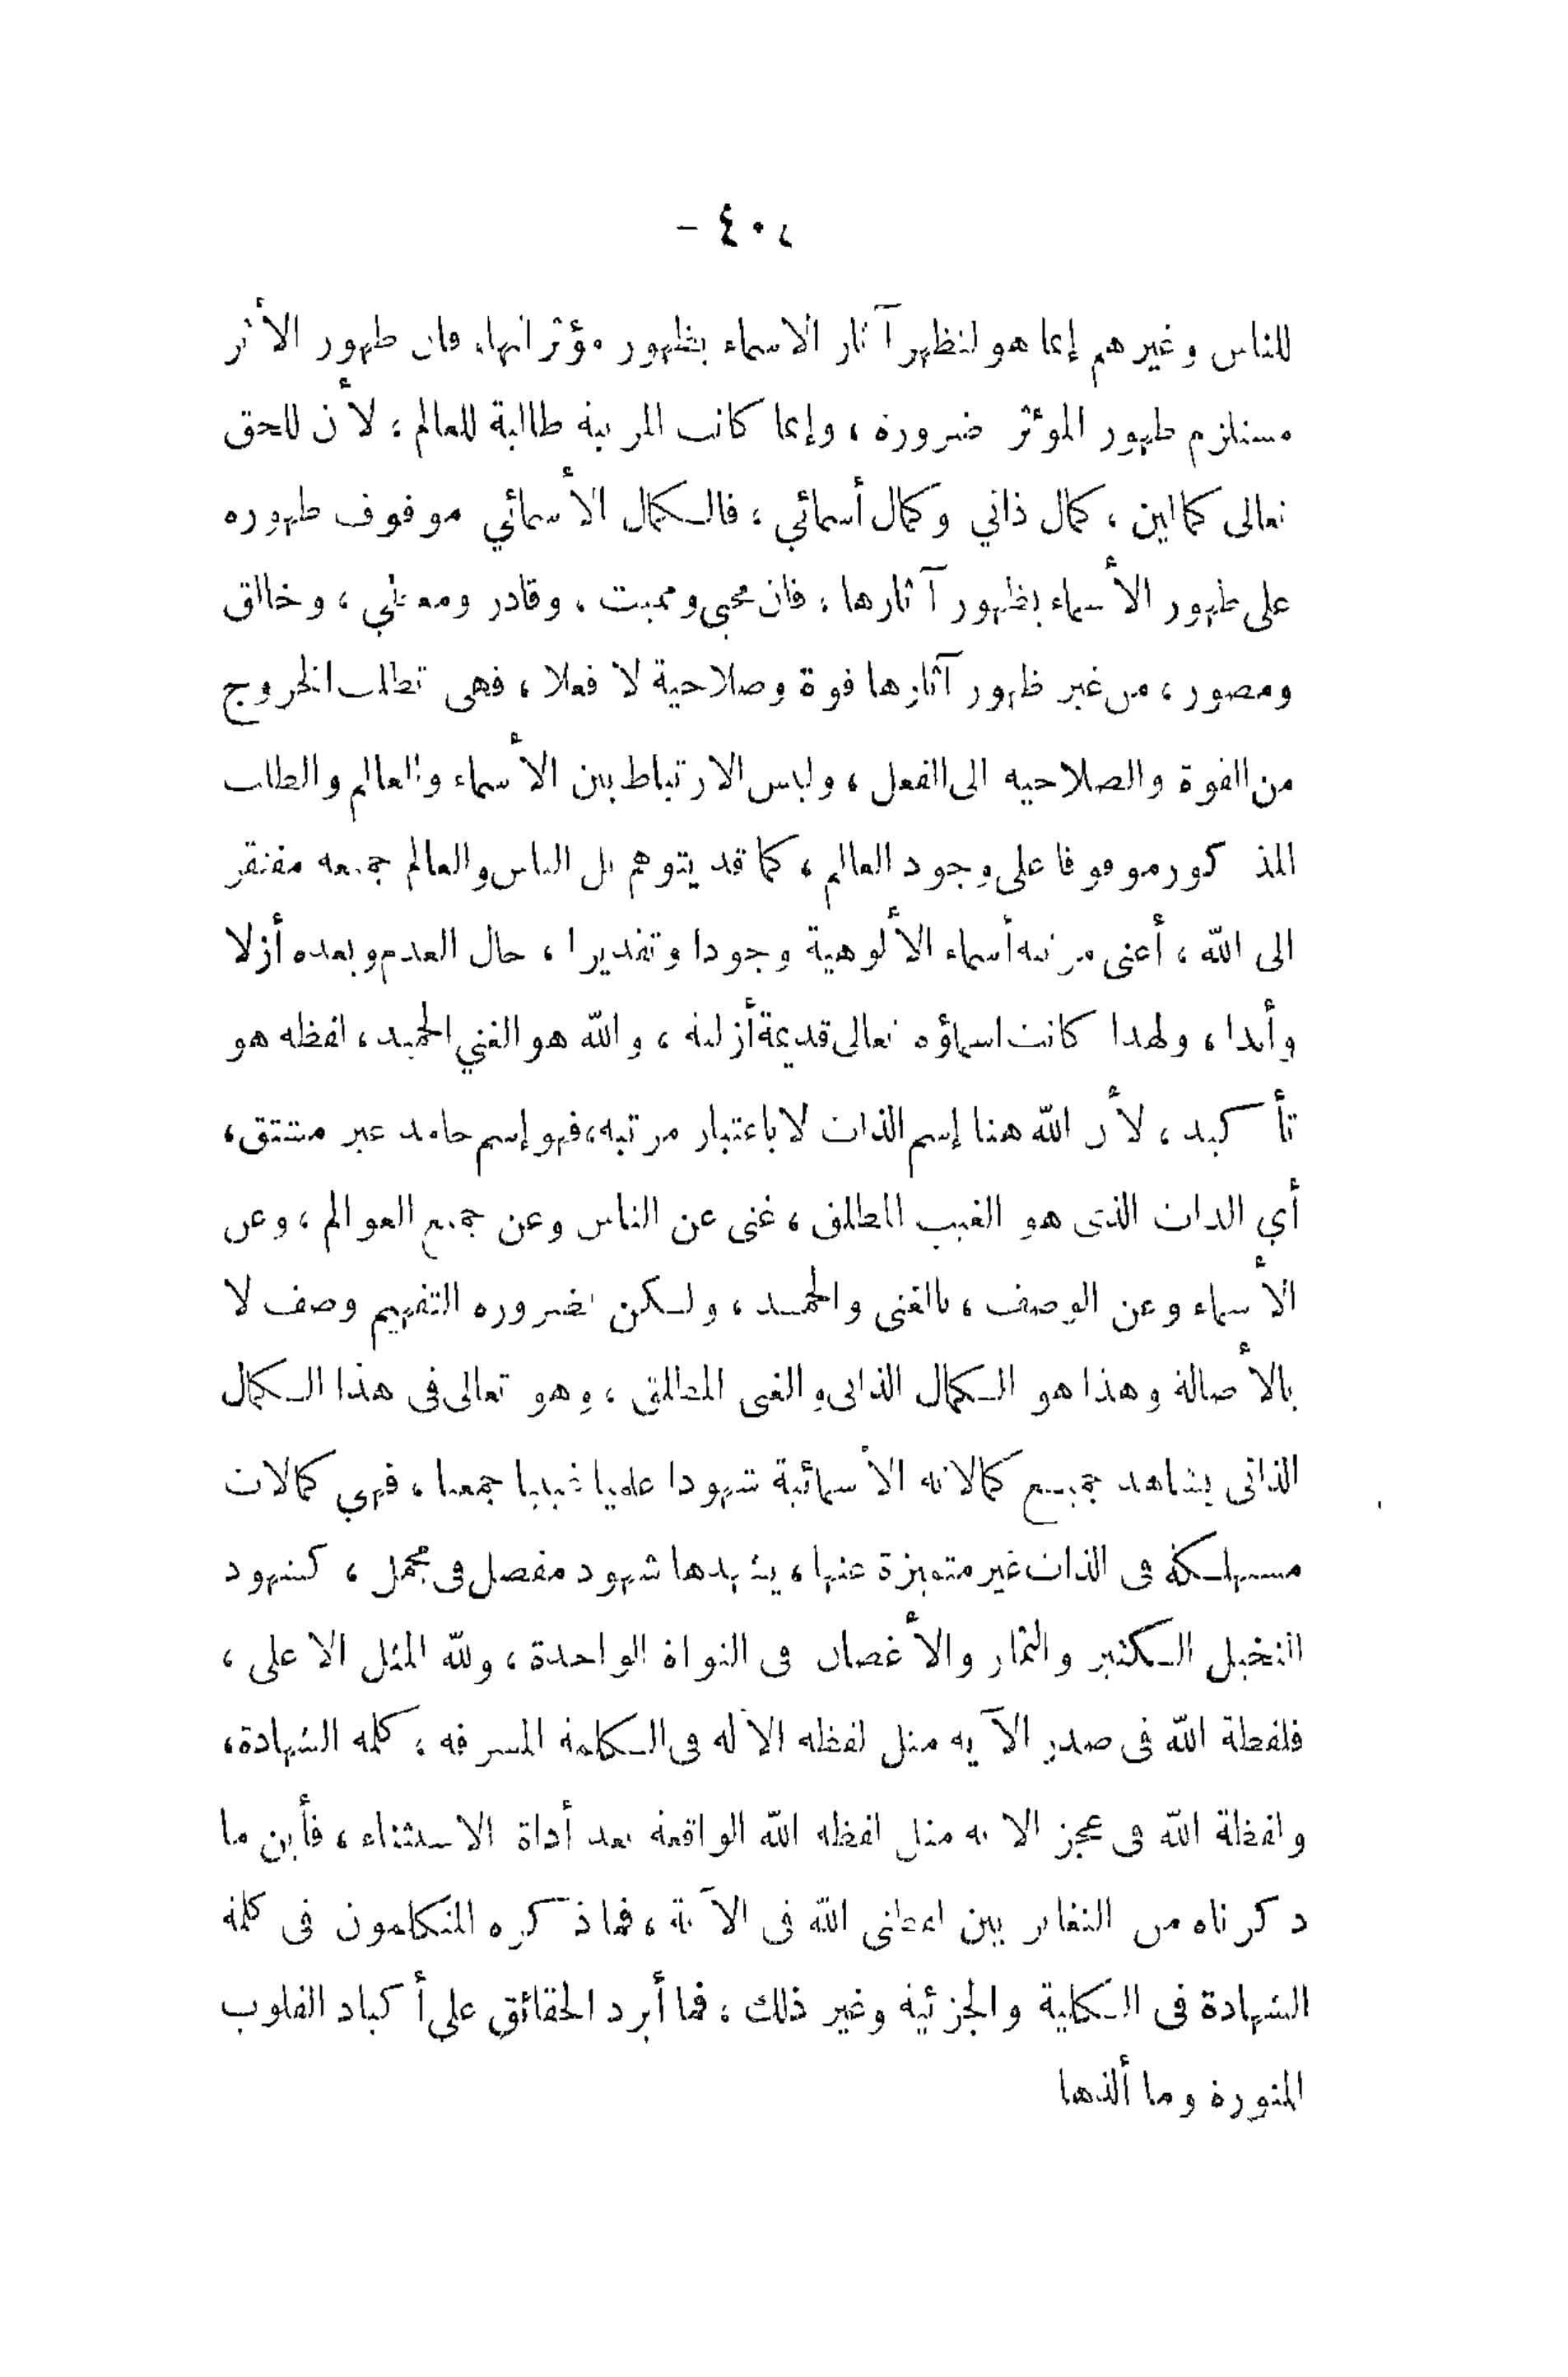 ٤٠٢ -
للناس وغيرهم إنما هو لتظهر آثار الاسماء بظهور مؤثراتها، فان ظهور الأثر
مستلزم ظهور المؤثر ضرورة ، وإنما كانت المرتبة طالبة للعالم ، لأن للحق
تعالى كمالين ، كمال ذاتي وكمال أسمائي ، فالكمال الأسمائي موقوف ظهوره
على ظهور الأسماء بظهور آثارها ، فان محيي ومميت ، وقادر ومعطي ، وخالق
ومصور ، من غير ظهور آثارها قوة وصلاحية لا فعلا ، فهى تطلب الخروج
من القوة والصلاحية الى الفعل ، وليس الارتباط بين الأسماء والعالم والطلب
المذكور موقوفا على وجود العالم ، كما قد يتوهم بل الناس والعالم جميعه مفتقر
الى الله ، أعنى مرتبة أسماء الألوهية وجودا وتقديرا ، حال العدم وبعده أزلا
وأبدا ، ولهذا كانت اسماؤه تعالى قديمة أزلية ، والله هو الغني الحميد ، لفظه هو
تأكيد ، لأن الله هنا إسم الذات لا باعتبار مرتبه ، فهو إسم جامد غير مشتق ،
أي الذات الذى هو الغيب المطلق ، غنى عن الناس وعن جميع العوالم ، وعن
الأسماء وعن الوصف ، بالغنى والحمد ، ولكن لضروره التفهيم وصف لا
بالأصالة وهذا هو الكمال الذاتى والغنى المطلق ، وهو تعالى فى هذا الكمال
الذاتى يشاهد جميع كمالاته الأسمائية شهودا علميا غيبيا جمعيا ، فهي كمالات
مستهلكة فى الذات غير متميزة عنها ، يشهدها شهود مفصل فى مجمل ، كشهود
النخيل الكثير والثمار والأغصان فى النواة الواحدة ، ولله المثل الاعلى ،
فلفظة الله فى صدر الآيه مثل لفظه الاله فى الكلمة المشرفه ، كلمه الشهادة ،
ولفظة الله فى عجز الآية مثل لفظه الله الواقعة بعد أداة الاستثناء ، فأين ما
ذكرناه من التغاير بين لفظتى الله فى الآية ، فما ذكره المتكلمون فى كلمة
الشهادة فى الكلية والجزئية وغير ذلك ، فما أبرد الحقائق على أكباد القلوب
المنورة وما ألذها